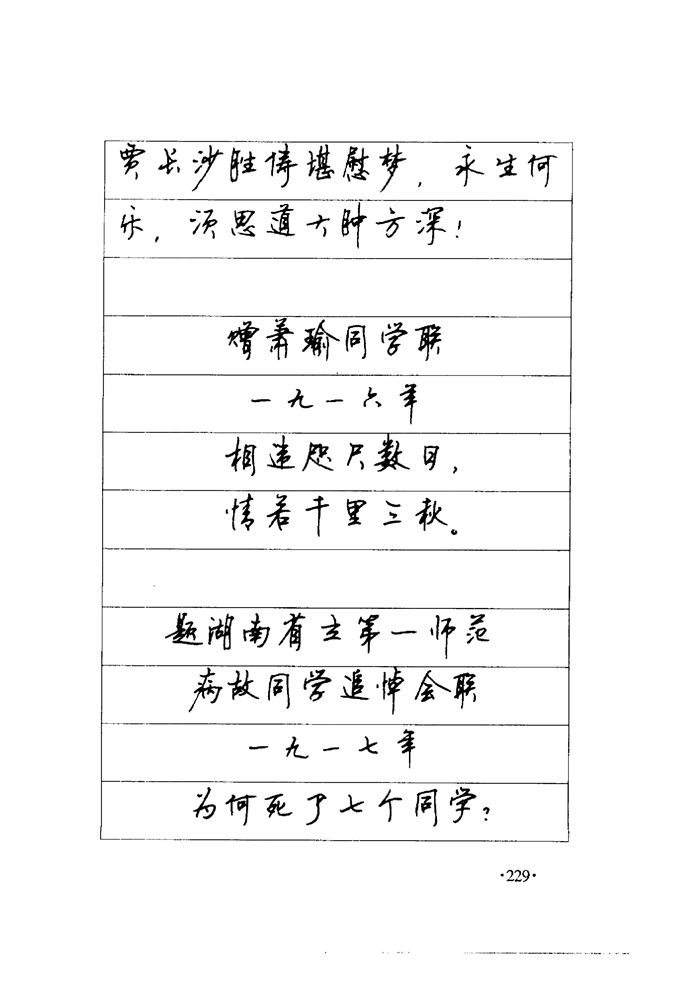 贾长沙胜俦堪慰梦，永生何
乐，须思道大肿方深！
赠萧瑜同学联
一九一六年
相违咫尺数日，
情若千里三秋。
题湖南省立第一师范
病故同学追悼会联
一九一七年
为何死了七个同学？
·229·